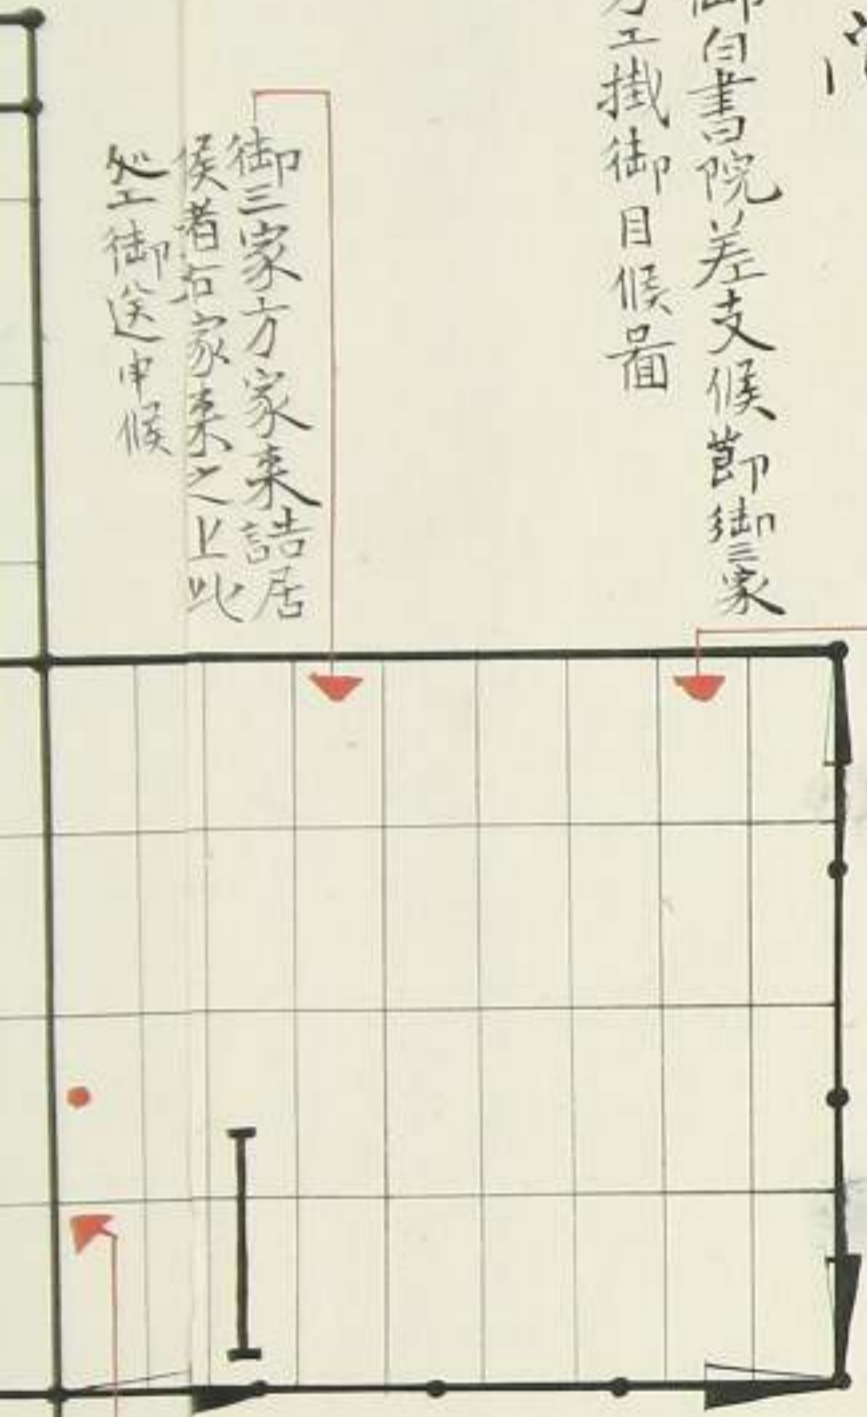 御白書院差支候節御三家
方エ掛御目候畳
御三家方家来詰居
候者右家来之上此
処エ御送申候